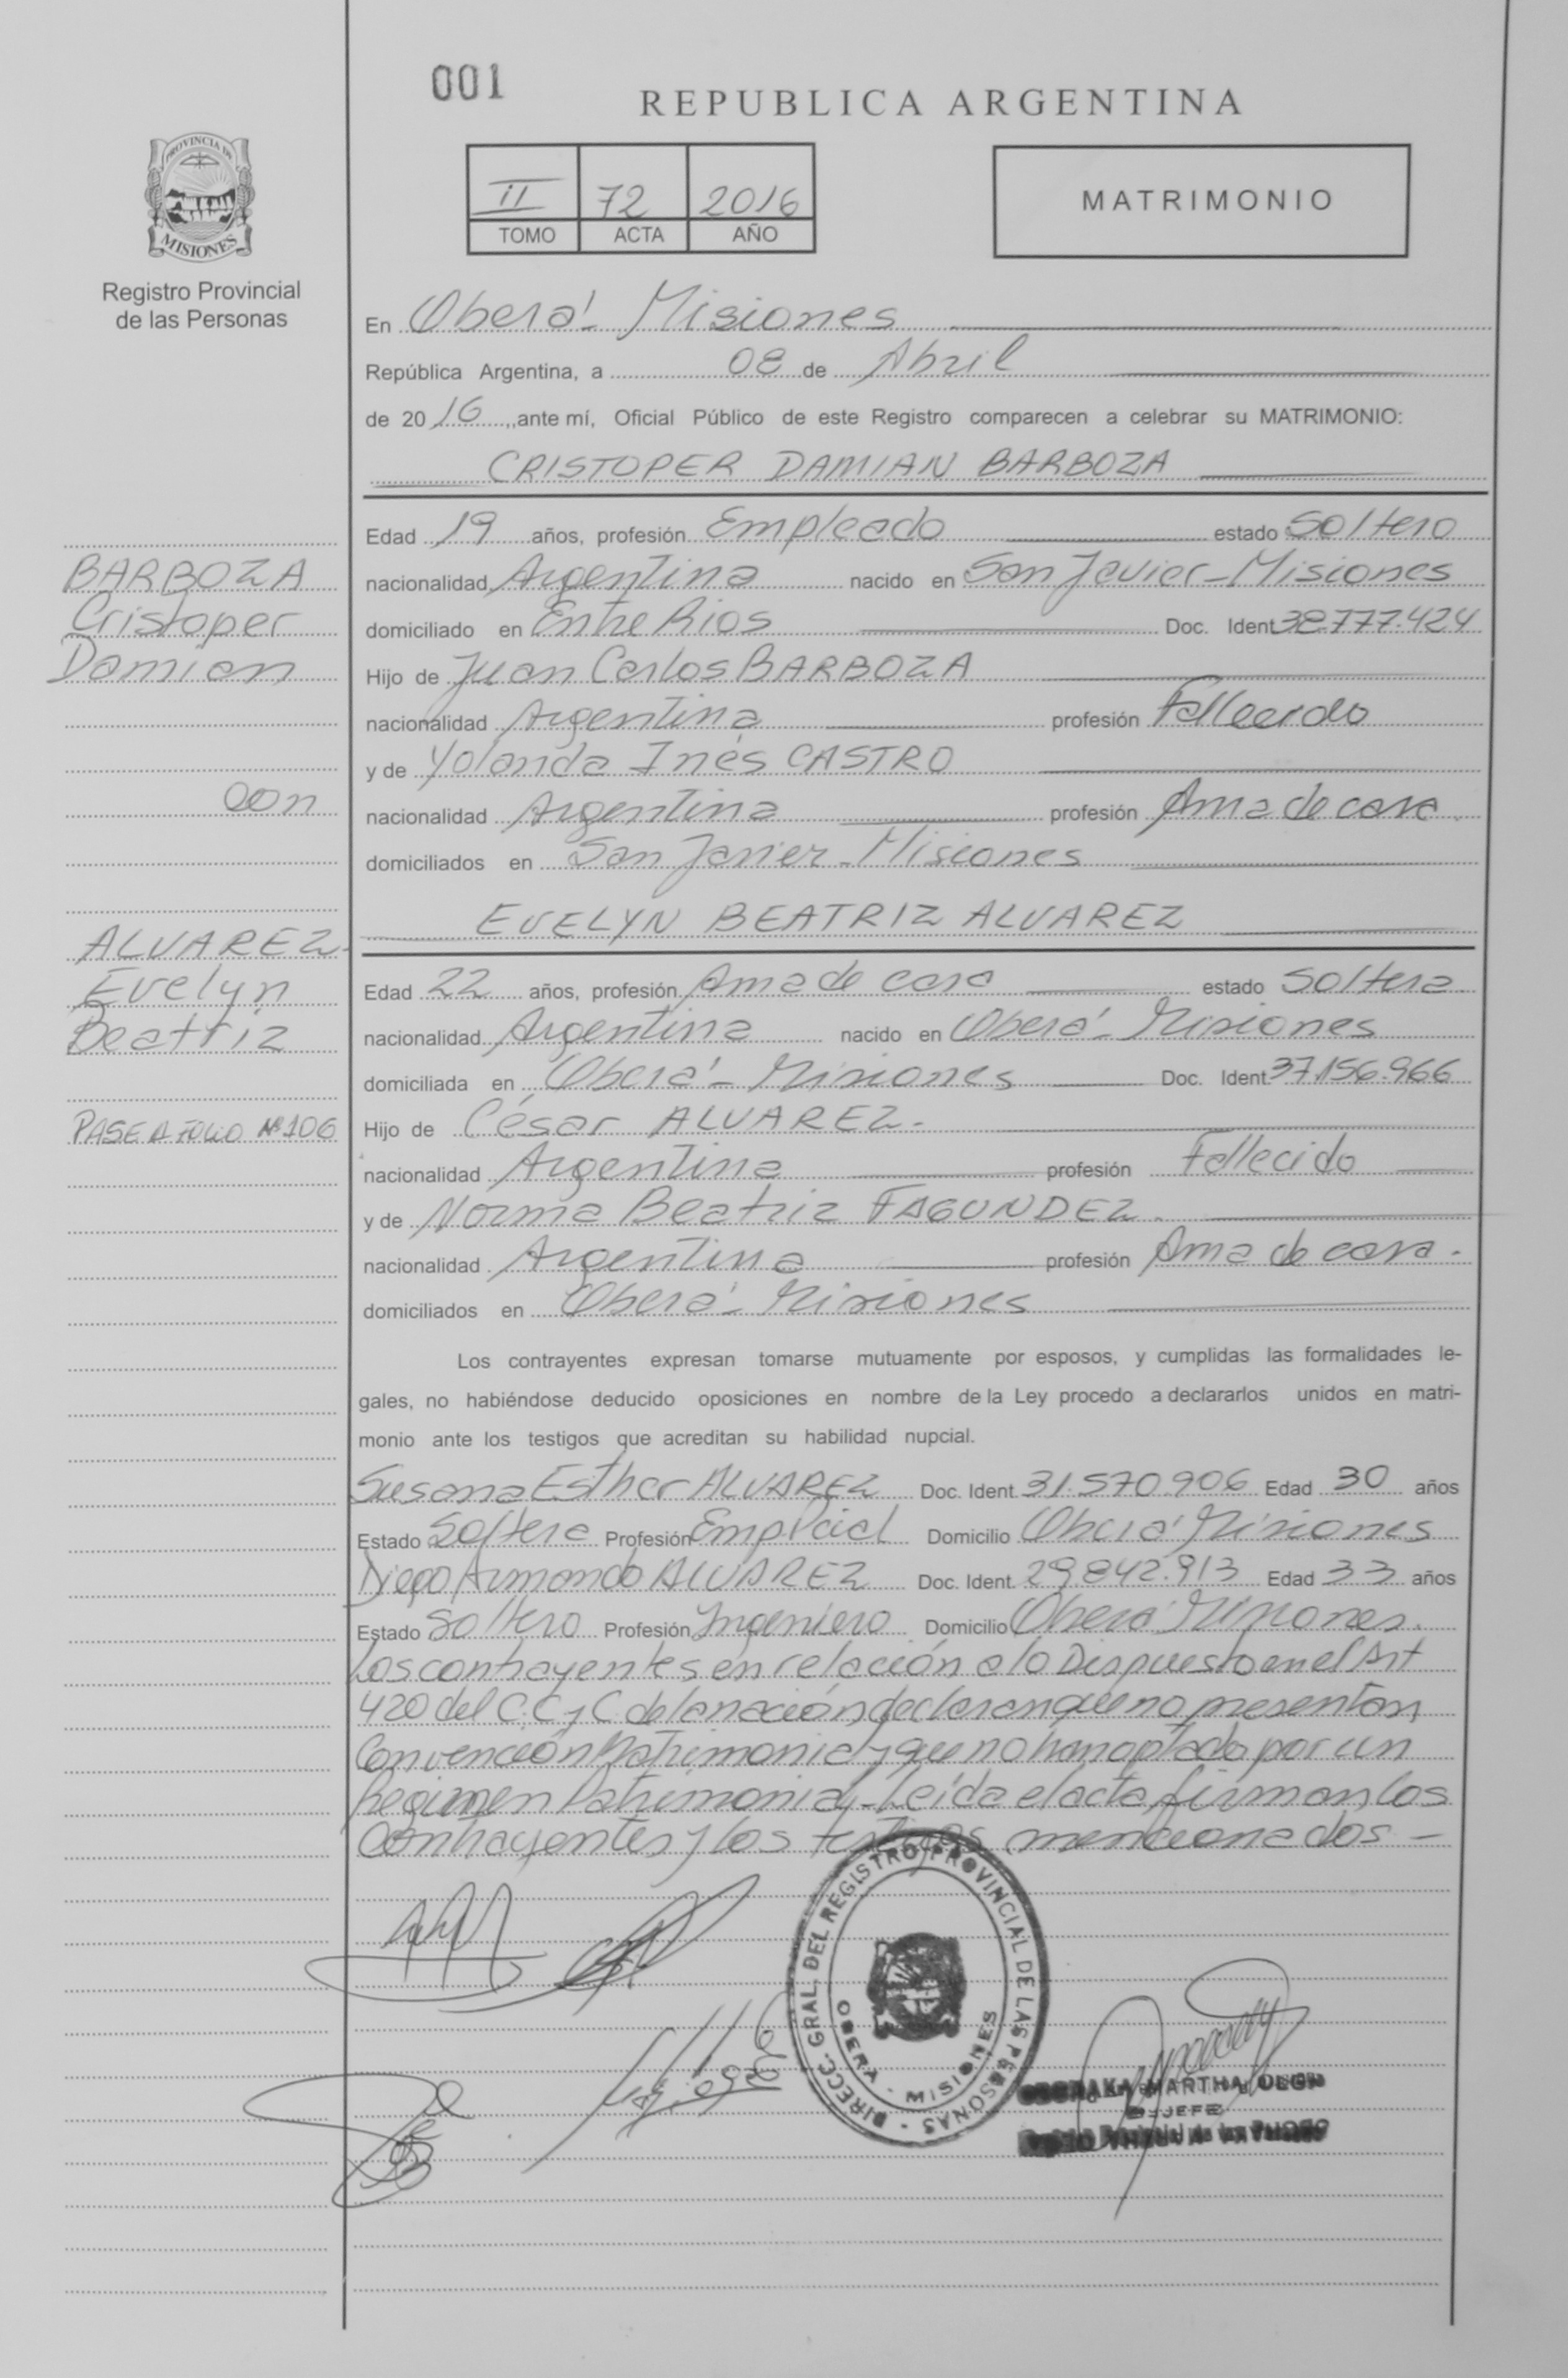 001
REPUBLICA ARGENTINA
PROVINCIA DE
MISIONES
Registro Provincial
de las Personas
II 72 2016
TOMO ACTA AÑO
MATRIMONIO
En Oberá - Misiones
República Argentina, a 08 de Abril
de 20 16, ante mí, Oficial Público de este Registro comparecen a celebrar su MATRIMONIO:
CRISTOPER DAMIAN BARBOZA
BARBOZA
Cristoper
Damian
con
ALVAREZ
Evelyn
Beatriz
PASE A FOLIO Nº 106
Edad 19 años, profesión Empleado estado Soltero
nacionalidad Argentina nacido en San Javier - Misiones
domiciliado en Entre Rios Doc. Ident 38.777.424
Hijo de Juan Carlos BARBOZA
nacionalidad Argentina profesión Fallecido
y de Yolanda Inés CASTRO
nacionalidad Argentina profesión Ama de casa.
domiciliados en San Javier - Misiones
EVELYN BEATRIZ ALVAREZ
Edad 22 años, profesión Ama de casa estado Soltera
nacionalidad Argentina nacido en Oberá - Misiones
domiciliada en Oberá - Misiones Doc. Ident 37.156.966
Hijo de César ALVAREZ.
nacionalidad Argentina profesión Fallecido
y de Norma Beatriz FAGUNDEZ.
nacionalidad Argentina profesión Ama de casa.
domiciliados en Oberá - Misiones
Los contrayentes expresan tomarse mutuamente por esposos, y cumplidas las formalidades le-
gales, no habiéndose deducido oposiciones en nombre de la Ley procedo a declararlos unidos en matri-
monio ante los testigos que acreditan su habilidad nupcial.
Susana Esther ALVAREZ Doc. Ident. 31.570.906 Edad 30 años
Estado Soltera Profesión Emp Pcial Domicilio Oberá Misiones
Diego Armando ALVAREZ Doc. Ident. 29.842.913 Edad 33 años
Estado Soltero Profesión Ingeniero Domicilio Oberá Misiones.
Los contrayentes en relación a lo Dispuesto en el Art
420 del C.C y C. de la nación declaran que no presentan
Convención Matrimonial y que no han optado por un
Regimen Patrimonial - Leída el acta firman los
Contrayentes y los testigos mencionados -
DIRECC. GRAL. DEL REGISTRO PROVINCIAL DE LAS PERSONAS
OBERA - MISIONES
MARTHA OLGA
JEFE